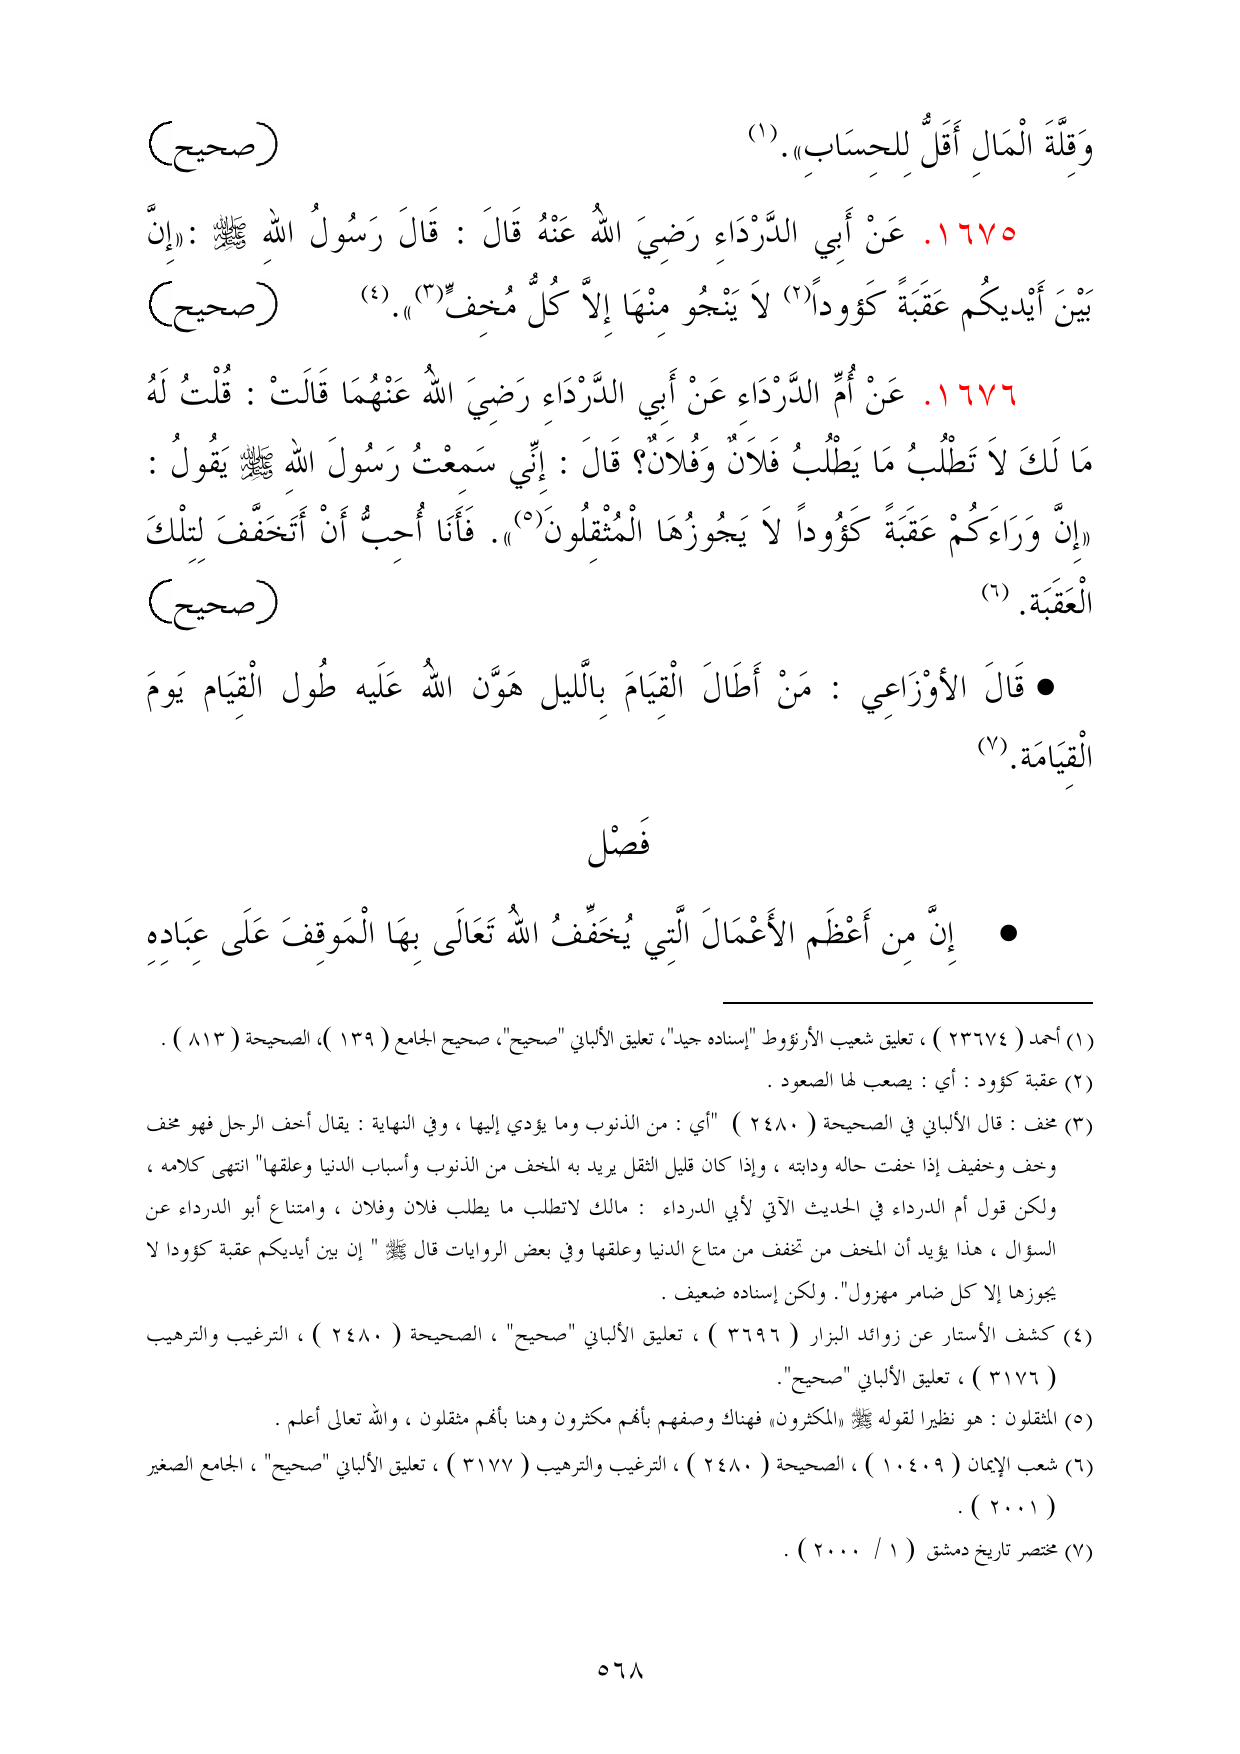 وَقِلَّةَ الْمَالِ أَقَلُّ لِلحِسَابِ». (١) (صحيح)
١٦٧٥. عَنْ أَبِي الدَّرْدَاءِ رَضِيَ اللهُ عَنْهُ قَالَ : قَالَ رَسُولُ اللهِ ﷺ :«إِنَّ
بَيْنَ أَيْديكُم عَقَبَةً كَؤوداً(٢) لاَ يَنْجُو مِنْهَا إِلاَّ كُلُّ مُخِفٍّ(٣)». (٤) (صحيح)
١٦٧٦. عَنْ أُمِّ الدَّرْدَاءِ عَنْ أَبِي الدَّرْدَاءِ رَضِيَ اللهُ عَنْهُمَا قَالَتْ : قُلْتُ لَهُ
مَا لَكَ لاَ تَطْلُبُ مَا يَطْلُبُ فَلاَنٌ وَفُلاَنٌ؟ قَالَ : إِنِّي سَمِعْتُ رَسُولَ اللهِ ﷺ يَقُولُ :
«إِنَّ وَرَاءَكُمْ عَقَبَةً كَؤُوداً لاَ يَجُوزُهَا الْمُثْقِلُونَ(٥)». فَأَنَا أُحِبُّ أَنْ أَتَخَفَّفَ لِتِلْكَ
الْعَقَبَة. (٦) (صحيح)
● قَالَ الأوْزَاعِي : مَنْ أَطَالَ الْقِيَامَ بِالَّليل هَوَّن اللهُ عَلَيه طُول الْقِيَام يَومَ
الْقِيَامَة. (٧)
فَصْل
● إِنَّ مِن أَعْظَم الأَعْمَالَ الَّتِي يُخَفِّفُ اللهُ تَعَالَى بِهَا الْمَوقِفَ عَلَى عِبَادِهِ
(١) أحمد ( ٢٣٦٧٤ ) ، تعليق شعيب الأرنؤوط "إسناده جيد"، تعليق الألباني "صحيح"، صحيح الجامع ( ١٣٩ )، الصحيحة ( ٨١٣ ) .
(٢) عقبة كؤود : أي : يصعب لها الصعود .
(٣) مخف : قال الألباني في الصحيحة ( ٢٤٨٠ ) "أي : من الذنوب وما يؤدي إليها ، وفي النهاية : يقال أخف الرجل فهو مخف
وخف وخفيف إذا خفت حاله ودابته ، وإذا كان قليل الثقل يريد به المخف من الذنوب وأسباب الدنيا وعلقها" انتهى كلامه ،
ولكن قول أم الدرداء في الحديث الآتي لأبي الدرداء : مالك لاتطلب ما يطلب فلان وفلان ، وامتناع أبو الدرداء عن
السؤال ، هذا يؤيد أن المخف من تخفف من متاع الدنيا وعلقها وفي بعض الروايات قال ﷺ " إن بين أيديكم عقبة كؤودا لا
يجوزها إلا كل ضامر مهزول". ولكن إسناده ضعيف .
(٤) كشف الأستار عن زوائد البزار ( ٣٦٩٦ ) ، تعليق الألباني "صحيح" ، الصحيحة ( ٢٤٨٠ ) ، الترغيب والترهيب
( ٣١٧٦ ) ، تعليق الألباني "صحيح".
(٥) المثقلون : هو نظيرا لقوله ﷺ «المكثرون» فهناك وصفهم بأنهم مكثرون وهنا بأنهم مثقلون ، والله تعالى أعلم .
(٦) شعب الإيمان ( ١٠٤٠٩ ) ، الصحيحة ( ٢٤٨٠ ) ، الترغيب والترهيب ( ٣١٧٧ ) ، تعليق الألباني "صحيح" ، الجامع الصغير
( ٢٠٠١ ) .
(٧) مختصر تاريخ دمشق ( ١ / ٢٠٠٠ ) .
٥٦٨